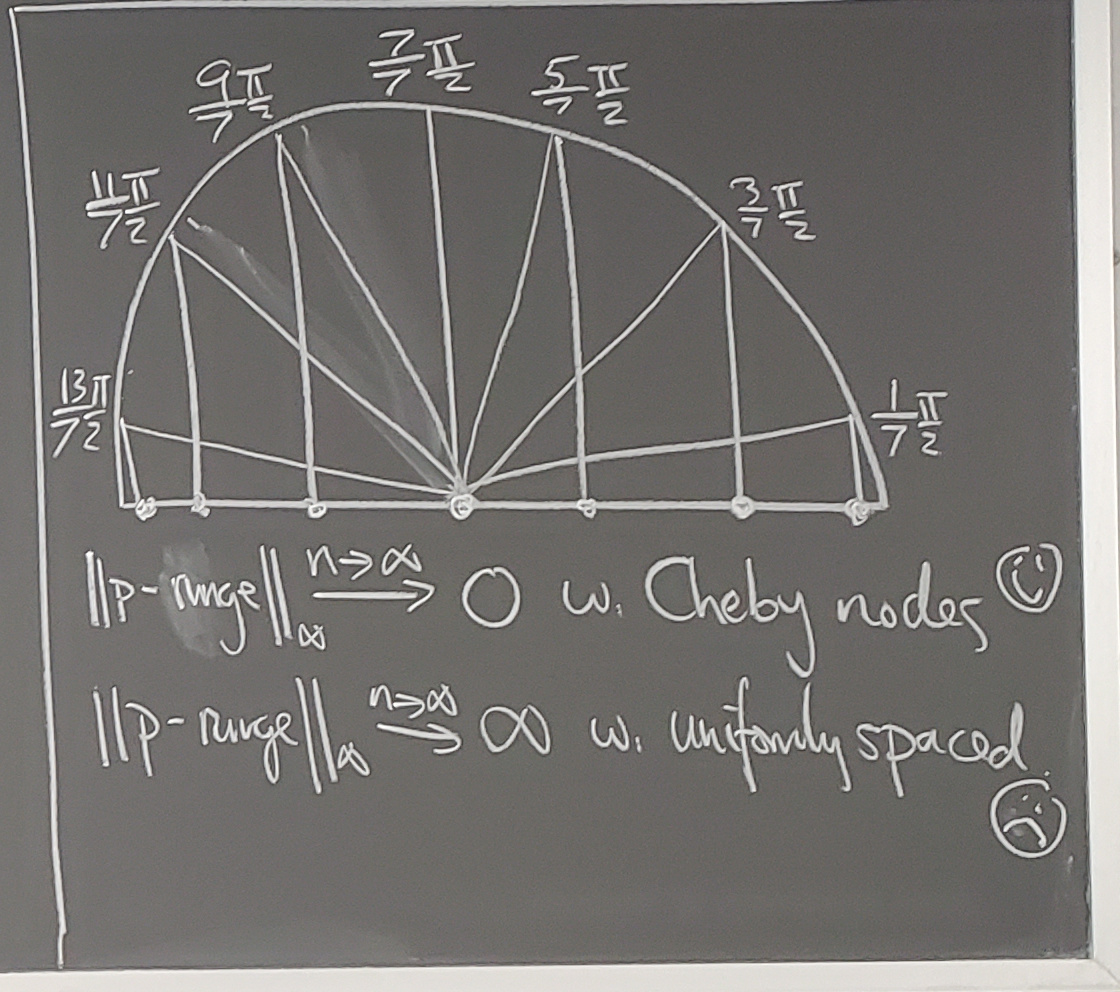 7/7 π/2
9/7 π/2
5/7 π/2
11/7 π/2
3/7 π/2
13/7 π/2
1/7 π/2
||p - runge||∞ n→∞ ⟶ 0 w. Cheby nodes ☺
||p - runge||∞ n→∞ ⟶ ∞ w. uniformly spaced. ☹